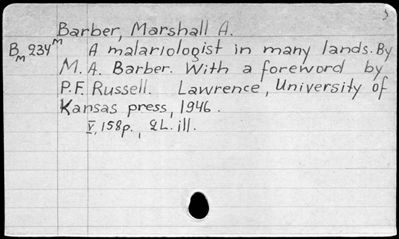 5
Barber, Marshall A.
Bm234m A malariologist in many lands. By
M. A. Barber. With a foreword by
P.F. Russell. Lawrence, University of
Kansas press, 1946.
V, 158p., 2L. ill.